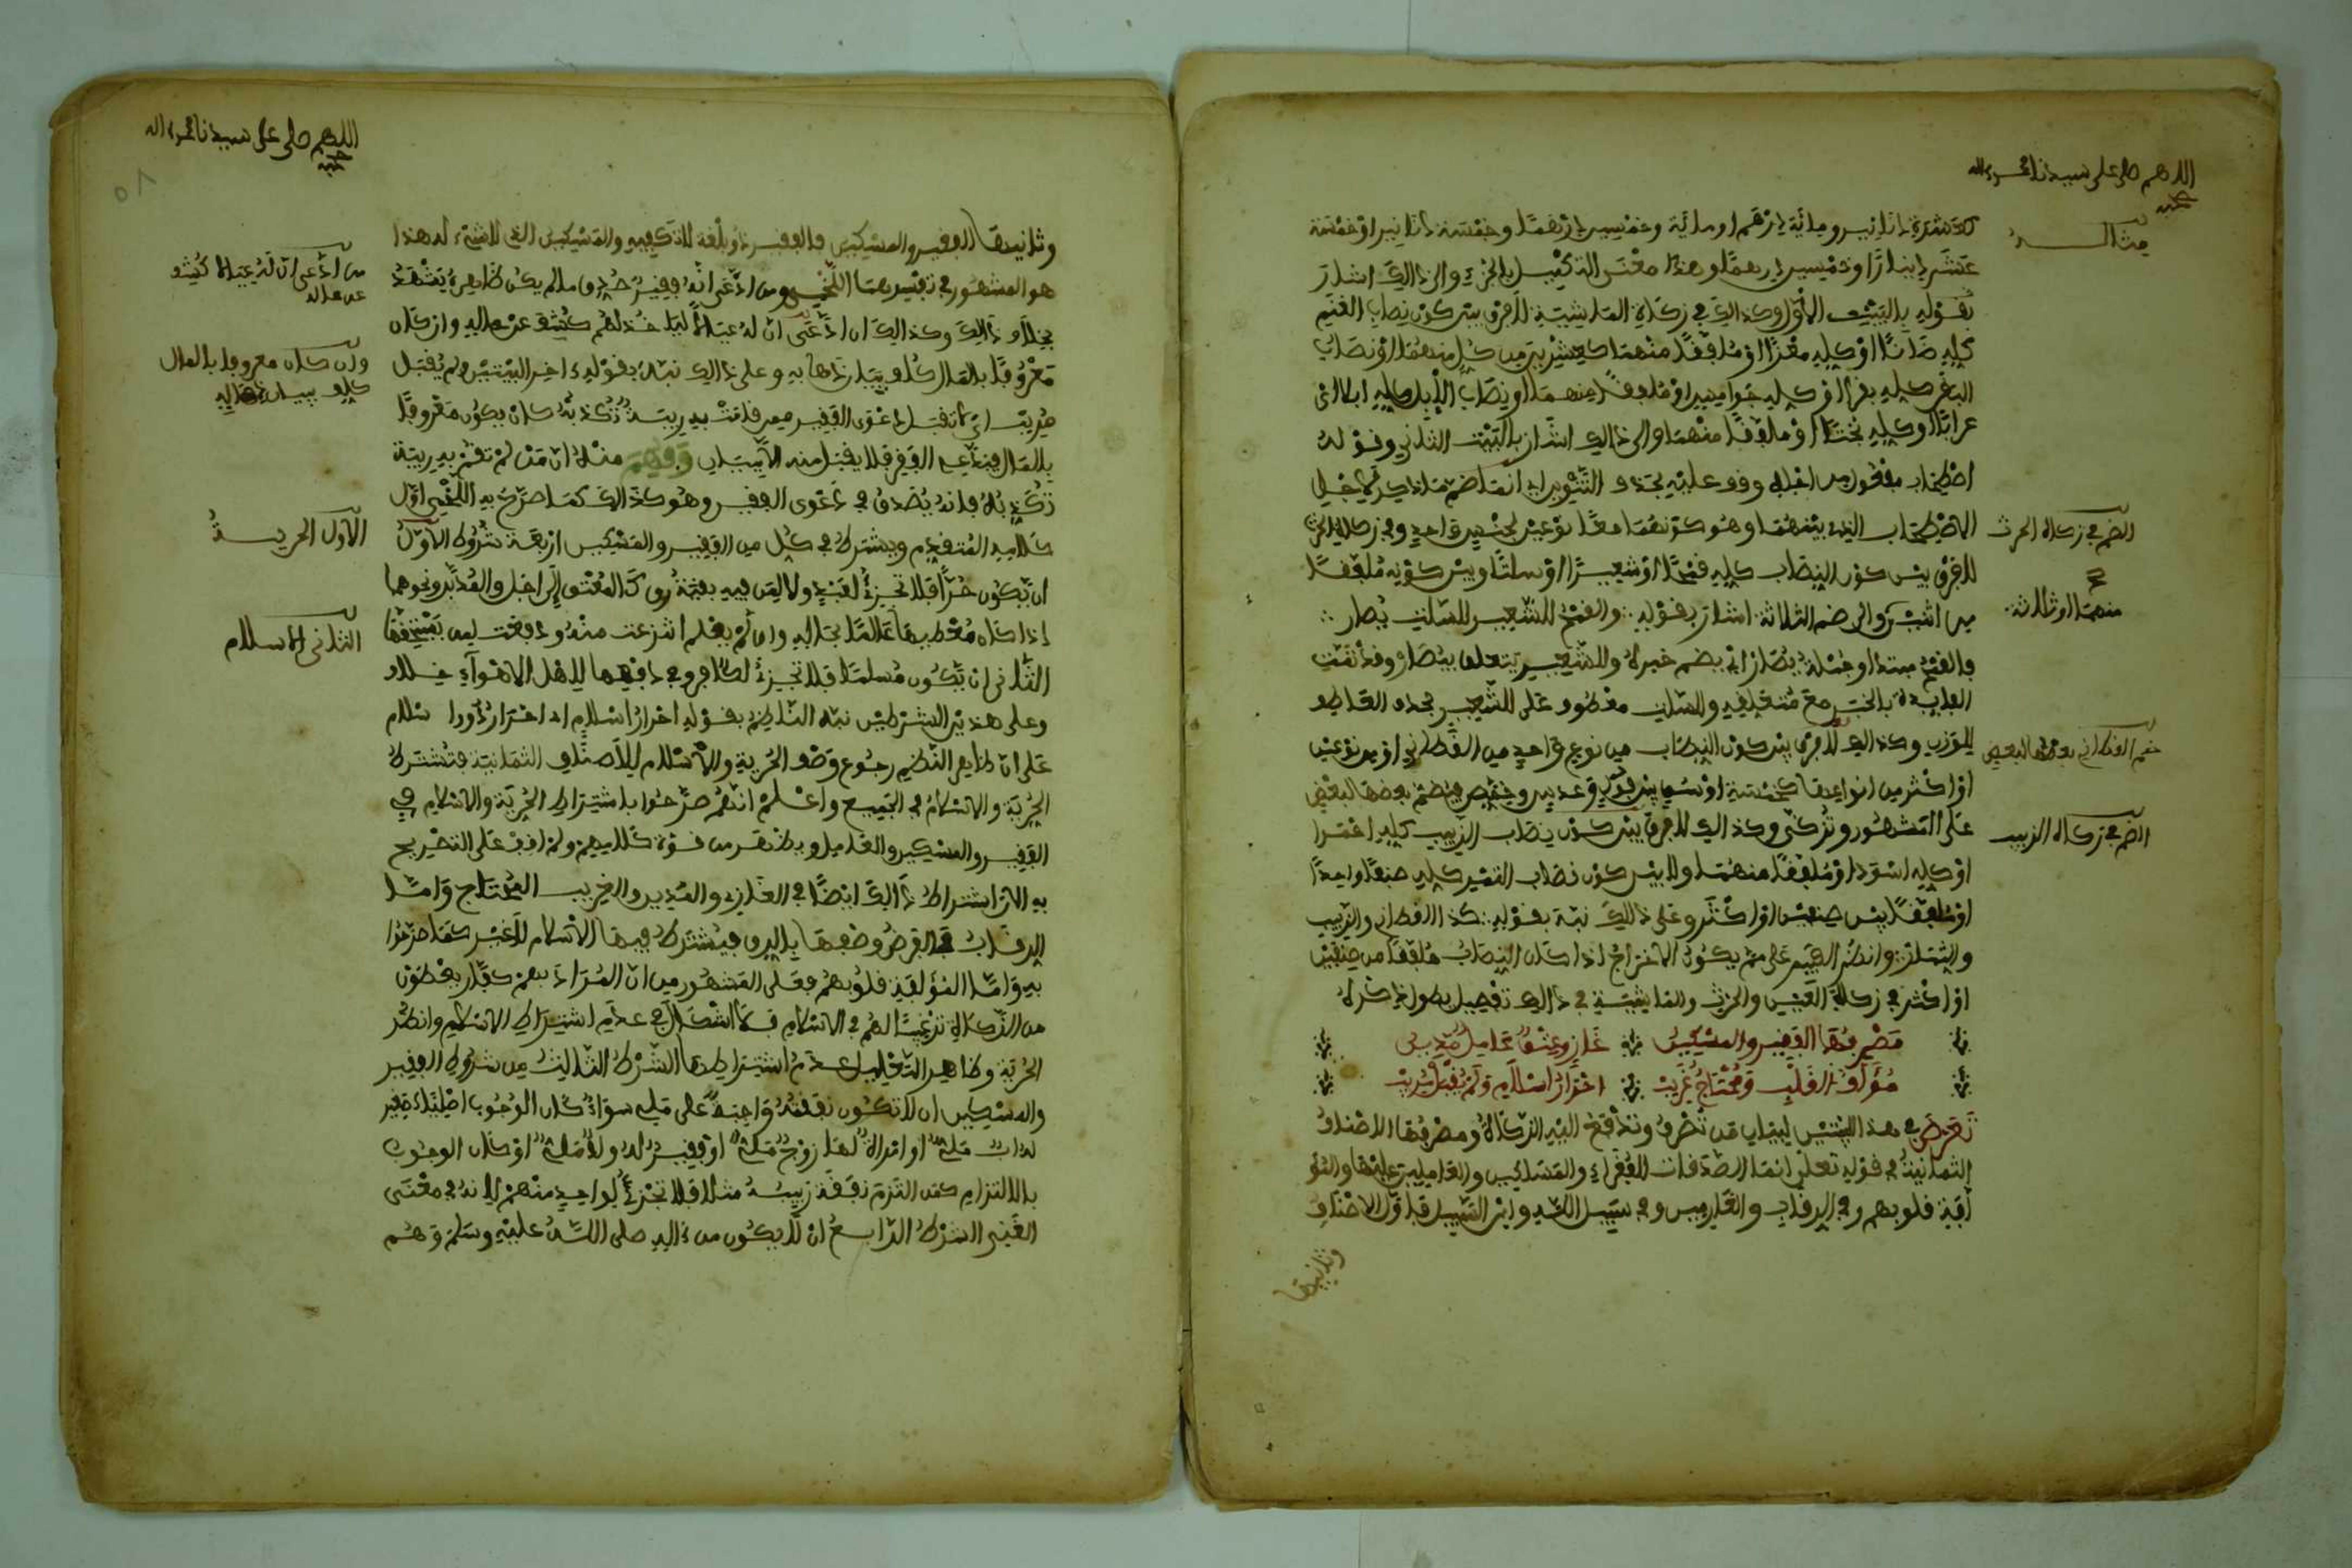 اللهم صل على سيدنا محمد وآله
وصحبه
كعشرة دنانير ومائة درهم او مائة وخمسين درهما وخمسة دنانير او خمسة
مثال
عشر دينارا وخمسين درهما وهذا معنى التكميل بالجزء والى ذالك اشار
بقوله بالبيت الاول وكذالك في زكاة الماشية لا فرق بين كون نصاب الغنم
كله ضانا او كله معزا او ملفقا منهما كعشرين من كل منهما او نصاب
البقر كله بقرا او كله جواميس او ملفقا منهما او نصاب الابل كله ابلا
عرابا او كله بختا او ملفقا منهما والى ذالك اشار بالبيت الثاني وقوله
اصطحاب مفعول من اجله ووقف عليه بحذف التنوين اي انما ضم ما ذكر لاجل
الاصطحاب الذي بينهما وهو كونهما معا نوعين لجنس واحد وفي زكاة الحرث
الضم في زكاة الحرث
لا فرق بين كون النصاب كله قمحا او شعيرا او سلتا وبين كونه ملفقا
من اثنين والى ضم الثلاثة اشار بقوله والقمح للشعير للسلت يصار
منهما او ثلاثة
فالقمح مبتدا وجملة يصار اي يضم خبره وللشعير يتعلق بيصار وقد تمت
الفايدة بالخبر مع متعلقه وللسلت معطوف على للشعير بحذف العاطف
للوزن وكذالك لا فرق بين كون النصاب من نوع واحد من القطاني او من نوعين
ضم القطاني بعضها لبعض
او اكثر من انواعها كخمسة اوسق بين فول وعدس وحمص فيضم بعضها لبعض
على المشهور وتزكى وكذالك لا فرق بين كون نصاب الزبيب كله احمرا
الضم في زكاة الزبيب
او كله اسودا او ملفقا منهما ولا بين كون نصاب التمر كله صنفا واحدا
او ملفقا بين صنفين او اكثر وعلى ذالك نبه بقوله كذا القطاني والزبيب
والثمار وانظر الكبير على مم يكون الاخراج اذا كان النصاب ملفقا من صنفين
او اكثر في زكاة العين والحرث والماشية في ذالك تفصيل يطول ذكره
مصرفها الفقير والمسكين غاز وعتق عامل مدين
مؤلف القلب ومحتاج غريب احرار اسلام ولم يقبل مريب
تعرض في هذا البيتين لبيان من تصرف وتدفع اليه الزكاة ومصرفها الاصناف
الثمانية في قوله تعالى انما الصدقات للفقراء والمساكين والعاملين عليها والمؤ
لفة قلوبهم وفي الرقاب والغارمين وفي سبيل الله وابن السبيل فاول الاصناف
وثانيها
اللهم صل على سيدنا محمد وآله
وصحبه
وثانيها الفقير والمسكين فالفقير ذو بلغة لا تكفيه والمسكين الذي لا شيء له هذا
هو المشهور في تفسيرهما اللخمي ومن ادعى انه فقير صدق ما لم يكن ظاهره يشهد
من ادعى ان له عيالا كشف
عن حاله
بخلاف ذالك وكذالك ان ادعى ان له عيالا لياخذ لهم كشف عن حاله وان كان
معروفا بالمال كلف بيان ذهابه وعلى ذالك نبه بقوله ءاخر البيتين ولم يقبل
وان كان معروفا بالمال
كلف ببيان ذهابه
مريب اي لا تقبل دعوى الفقير ممن قامت به ريبة تكذبه كان يكون معروفا
بالمال فيدعي الفقر فلا يقبل منه الا ببيان وفهم منه ان من لم تقم به ريبة
تكذبه فانه يصدق في دعوى الفقر وهو كذالك كما صرح به اللخمي اول
كلامه المتقدم ويشترط في كل من الفقير والمسكين اربعة شروط الاول
الاول الحرية
ان يكون حرا فلا تجزئ لعبد ولا لمن فيه بقية رق كالمعتق الى اجل والمدبر ونحوهما
اذا كان معطيها عالما بحاله وان لم يعلم انتزعت منه ودفعت لمن يستحقها
الثاني الاسلام
الثاني ان يكون مسلما فلا تجزئ لكافر وفي دفعها لاهل الاهواء خلاف
وعلى هذين الشرطين نبه الناظم بقوله احرار اسلام اي احرار ذووا اسلام
على ان ظاهر النظم رجوع وصف الحرية والاسلام للاصناف الثمانية فتشترط
الحرية والاسلام في الجميع واعلم انهم صرحوا باشتراط الحرية والاسلام في
الفقير والمسكين والعامل ويظهر من قوة كلامهم ولم اقف على التصريح
به الان اشتراط ذالك ايضا في الغازي والمدين والغريب المحتاج واما
الرقاب فالفرض وصفها بالرق فيشترط فيها الاسلام لا غير كما صرحوا
به واما المؤلفة قلوبهم فعلى المشهور من ان المراد بهم كفار يعطون
من الزكاة ترغيبا لهم في الاسلام فلا اشكال في عدم اشتراط الاسلام وانظر
الحرية وظاهر التعليل عدم اشتراطها الشرط الثالث من شروط الفقير
والمسكين ان لا تكون نفقته واجبة على ملي سواء كان الوجوب اصليا كفقير
له اب ملي او امراة لها زوج ملي او فقير له ولد ملي او كان الوجوب
بالالتزام كمن التزم نفقة ربيبه مثلا فلا تجزئ لواحد منهم لانه في معنى
الغني الشرط الرابع ان لا يكون من ءاله صلى الله عليه وسلم وهم